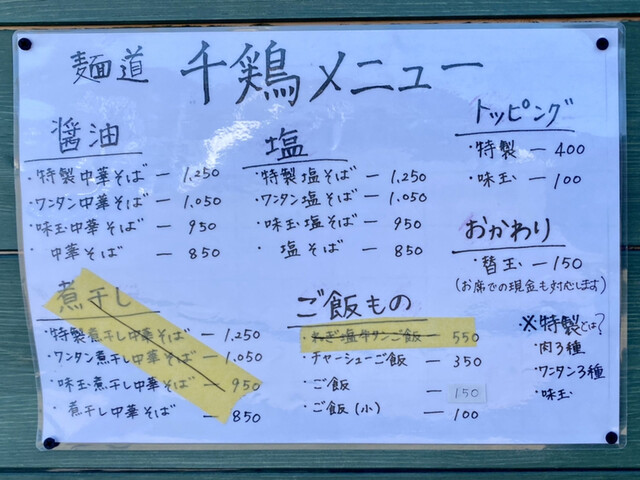 麺道 千鶏メニュー
醤油
・特製中華そば ー 1,250
・ワンタン中華そば ー 1,050
・味玉中華そば ー 950
・中華そば ー 850
塩
・特製塩そば ー 1,250
・ワンタン塩そば ー 1,050
・味玉塩そば ー 950
・塩そば ー 850
トッピング
・特製 ー 400
・味玉 ー 100
おかわり
・替玉 ー 150
(お席での現金も対応します)
煮干し
・特製煮干し中華そば ー 1,250
・ワンタン煮干し中華そば ー 1,050
・味玉煮干し中華そば ー 950
・煮干し中華そば ー 850
ご飯もの
・ねぎ塩牛タンご飯 ー 550
・チャーシューご飯 ー 350
・ご飯 ー 150
・ご飯(小) ー 100
※特製とは?
・肉3種
・ワンタン3種
・味玉